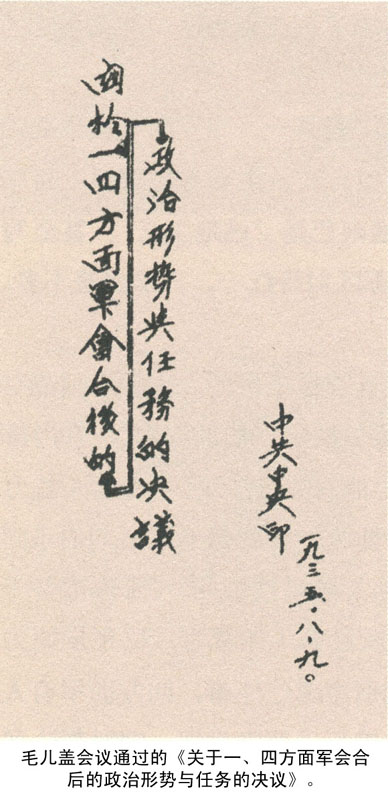 關於一四方面軍會合後的
政治形势與任務的决議
中共中央印
一九三五.八.九。
毛儿盖会议通过的《关于一、四方面军会合
后的政治形势与任务的决议》。